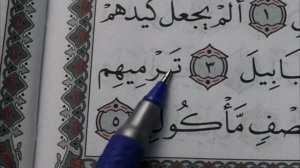 ١ أَلَمْ يَجْعَلْ كَيْدَهُمْ
بَابِيلَ ٣ تَرْمِيهِم
صْفٍ مَّأْكُولٍ ٥